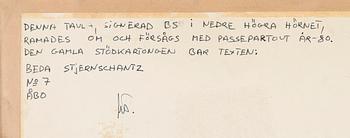 DENNA TAVLA, SIGNERAD BS I NEDRE HÖGRA HÖRNET,
RAMADES OM OCH FÖRSÅGS MED PASSEPARTOUT ÅR-80.
DEN GAMLA STÖDKARTONGEN BAR TEXTEN:
BEDA STJERNSCHANTZ
No 7
ÅBO